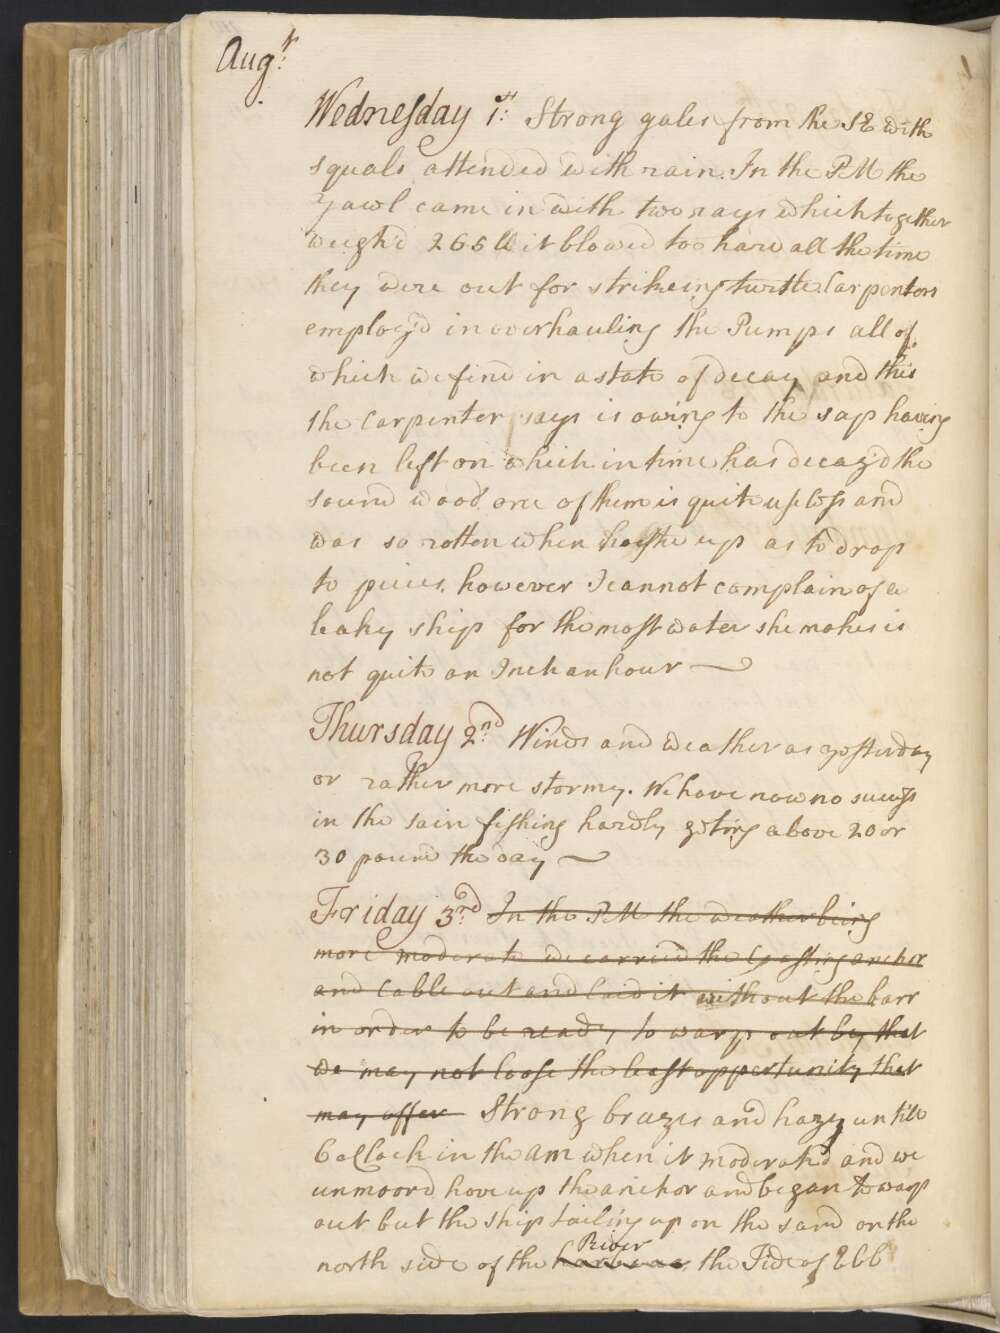 Augt:
Wednesday 1st: Strong gales from the SE with
squals attended with rain. In the PM the
Yawl came in with two rays which together
weigh'd 265 lb it blowed too hard all the time
they were out for strikeing turtle. Carpenters
employ'd in overhauling the Pumps all of
which we find in a state of decay and this
the Carpenter says is owing to the sap having
been left on which in time has decay'd the
sound wood one of them is quite useless and
was so rotten when hoisted up as to drop
to pieces. however I cannot complain of a
leaky ship for the most water she makes is
not quite an Inch an hour
Thursday 2nd: Winds and weather as yesterday
or rather more stormy. We have now no success
in the sain fishing hardly geting above 20 or
30 pound the day
Friday 3rd: In the PM the weather being
more moderate we carried the Coasting anchor
and Cable out and laid it without the barr
in order to be ready to warp out by that
we may not loose the least oppertunity that
may offer Strong brazes and hazy untill
6 oClock in the am when it moderated and we
unmoord hove up the anchor and began to warp
out but the ship tailing up on the sand on the
River
north side of the harbour, the Tide of Ebb